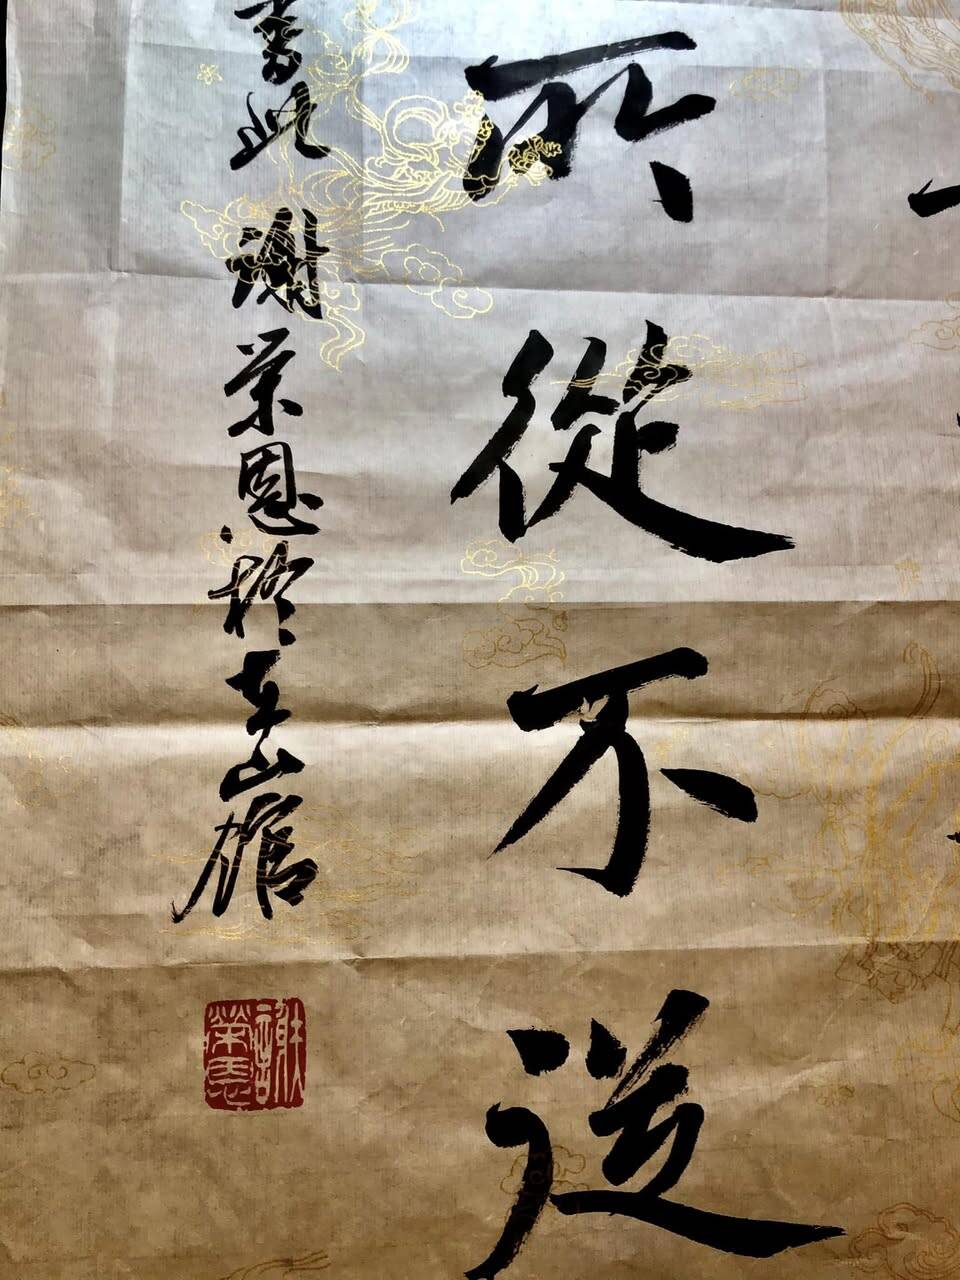 所從不
書此 謝榮恩於東山館
謝榮恩